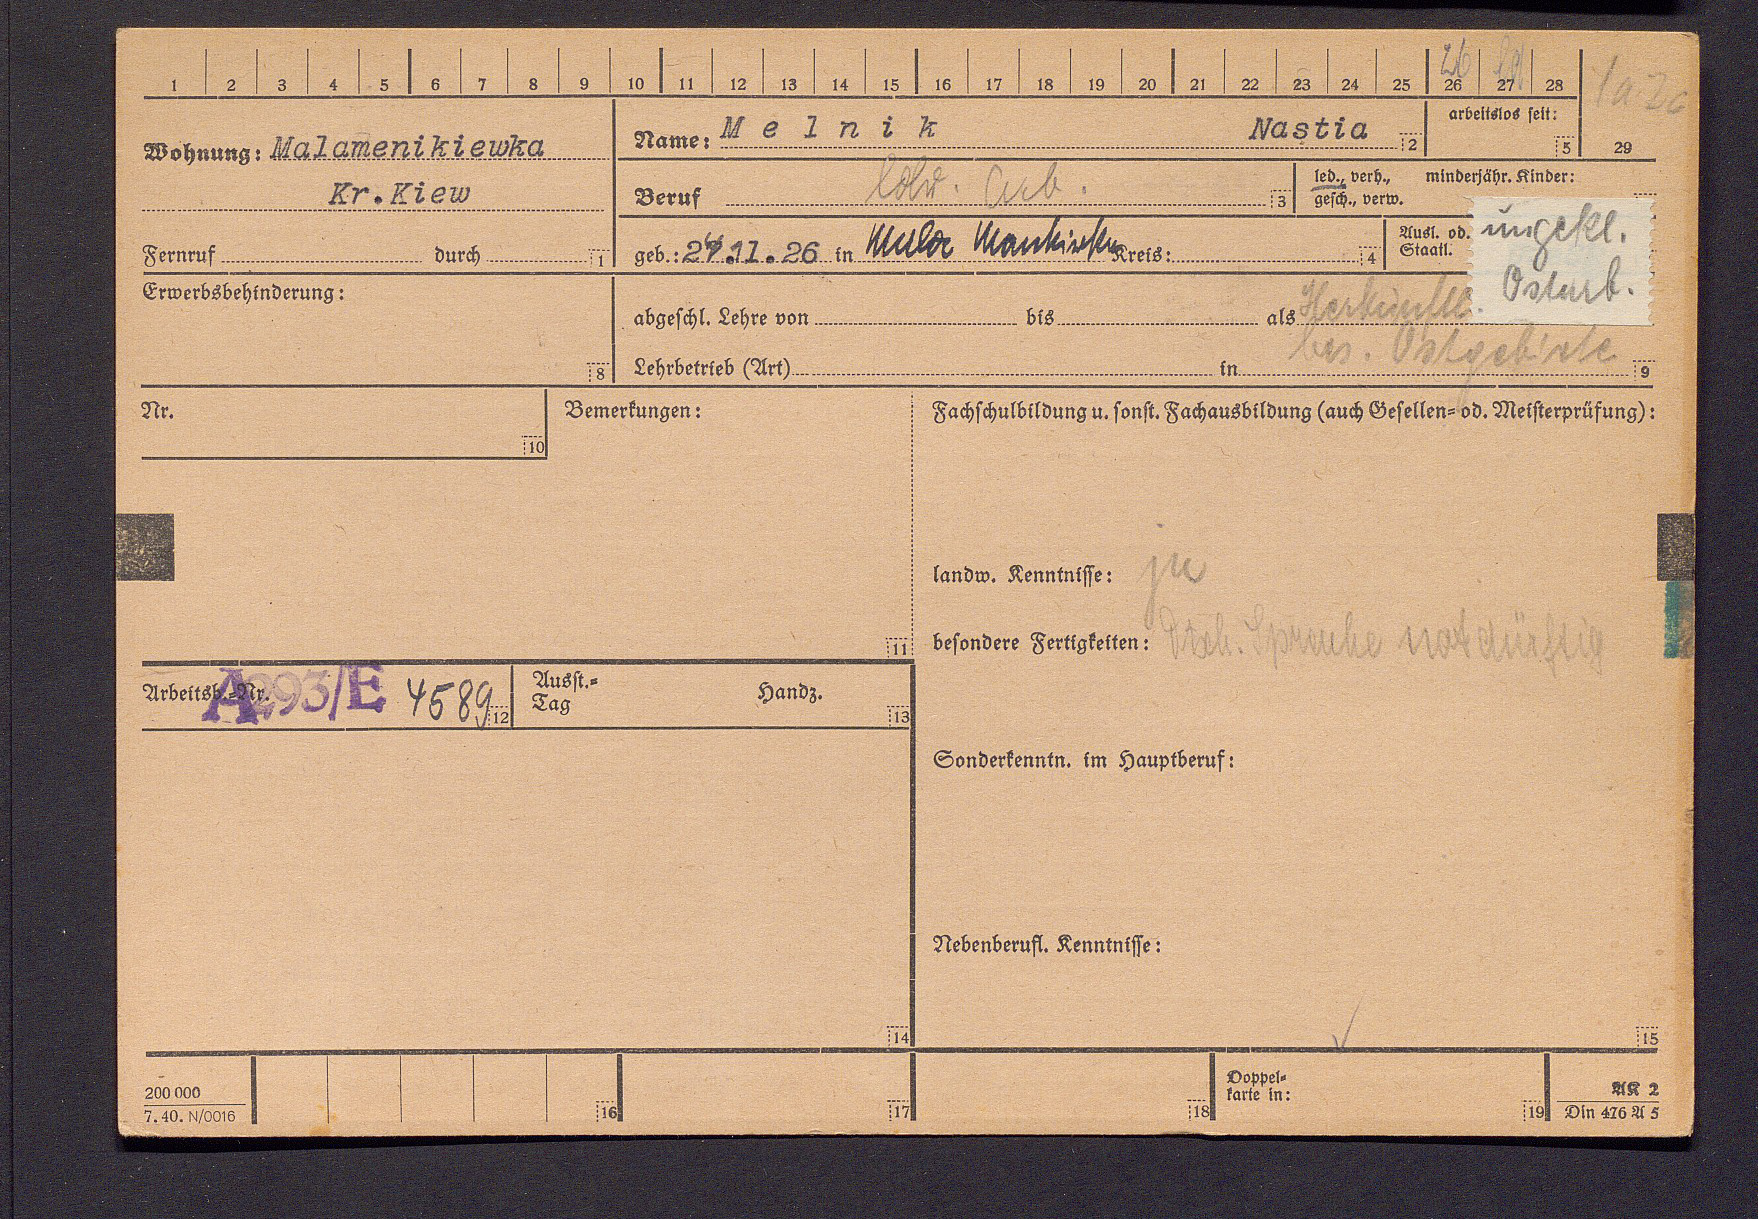 1 2 3 4 5 6 7 8 9 10 11 12 13 14 15 16 17 18 19 20 21 22 23 24 25 26 27 28
26
1a 2c
Wohnung: Malamenikiewka
Kr.Kiew
Fernruf durch 1
Name: Melnik Nastia 2
arbeitslos seit: 5
29
Beruf ldw. Arb. 3
led., verh., minderjähr. Kinder:
gesch., verw.
geb.: 24.11.26 in Mala Mankiwka Kreis: 4
Ausl. od.
Staatl.
ungekl.
Ostarb.
Erwerbsbehinderung:
8
abgeschl. Lehre von bis als Herkunftl.
bes. Ostgebiete
Lehrbetrieb (Art) in 9
Nr.
10
Bemerkungen:
11
Fachschulbildung u. sonst. Fachausbildung (auch Gesellen= od. Meisterprüfung):
landw. Kenntnisse: ja
besondere Fertigkeiten: Dtsch. Sprache notdürftig
Arbeitsb.=Nr. A293/E 4589 12
Ausst.=
Tag
Handz.
13
Sonderkenntn. im Hauptberuf:
Nebenberufl. Kenntnisse:
14
15
200 000
7. 40. N/0016
16
17
18
Doppel=
karte in:
19
AK 2
Din 476 A 5